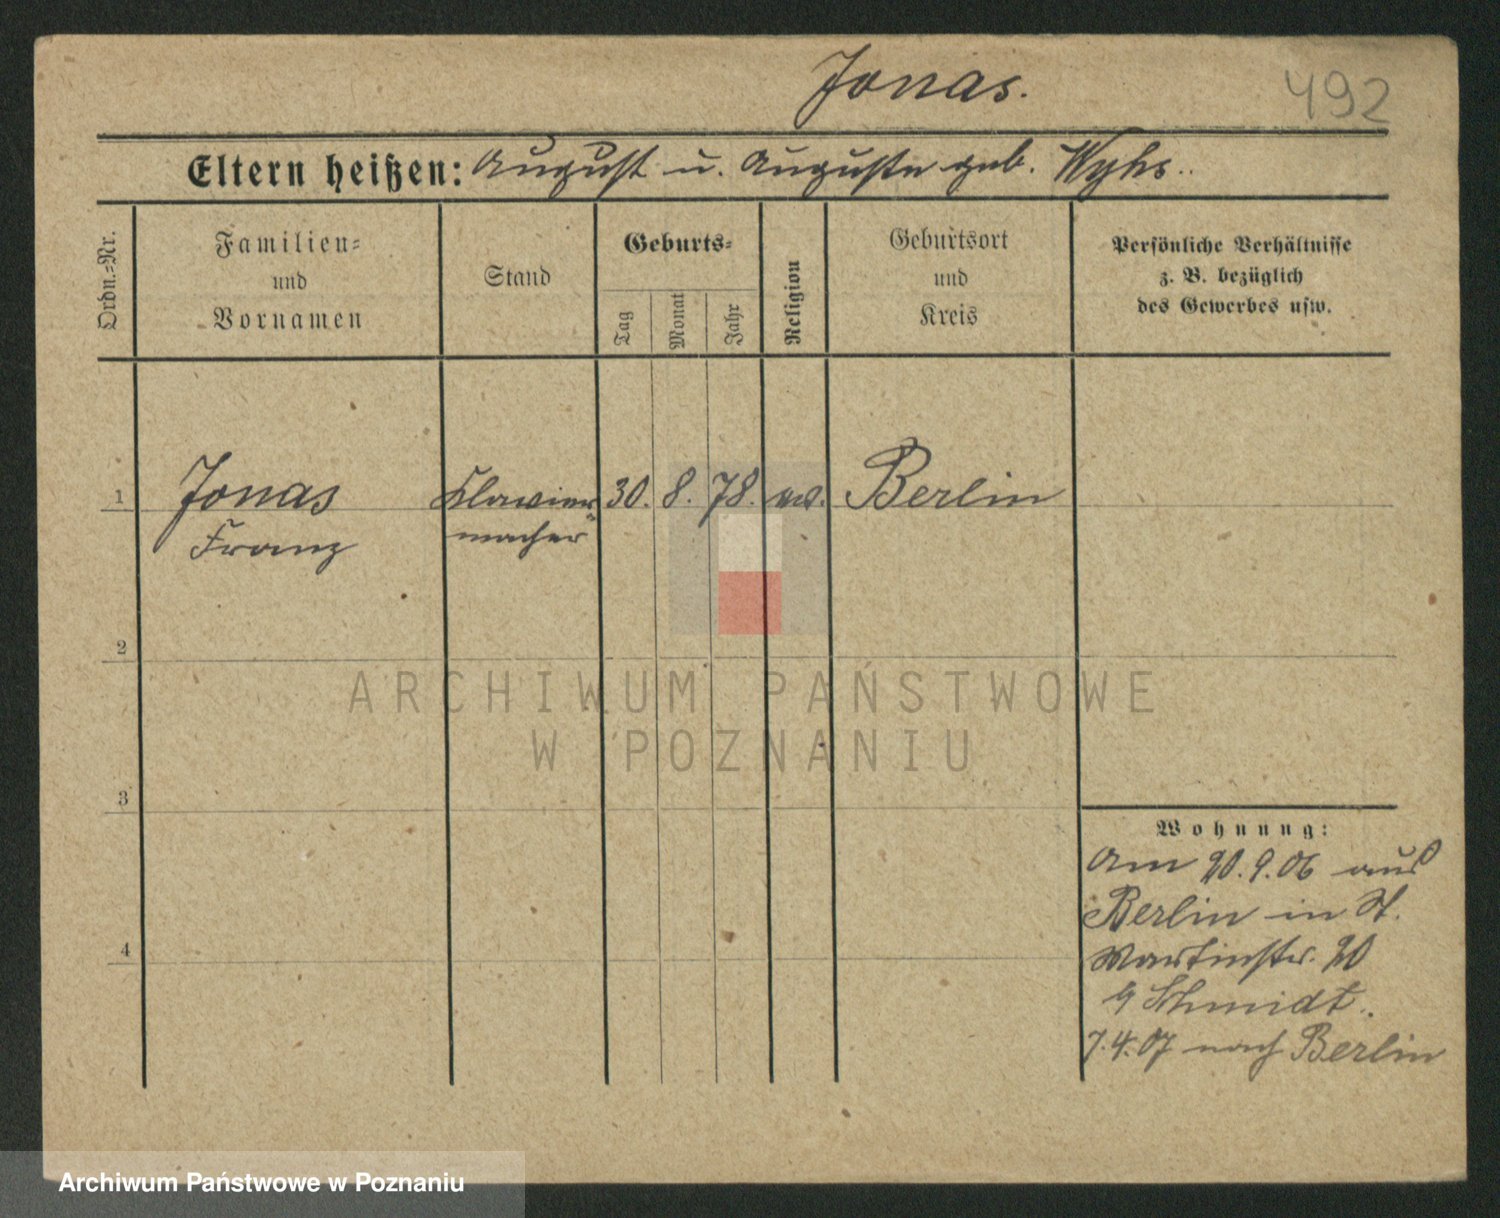 Jonas.
492
Eltern heißen: August u. Auguste geb.
Ordn.-Nr.
Familien-
und
Vornamen
Stand
Geburts-
Tag
Monat
Jahr
Religion
Geburtsort
und
Kreis
Persönliche Verhältnisse
z. B. bezüglich
des Gewerbes usw.
1
Jonas
Franz
Klavier
macher
30. 8. 78.
Berlin
2
3
4
Wohnung:
Am 20. 9. 06 aus
Berlin in St.
Martinstr. 20
Schmidt.
7. 4. 07 nach Berlin
ARCHIWUM PAŃSTWOWE
W POZNANIU
Archiwum Państwowe w Poznaniu